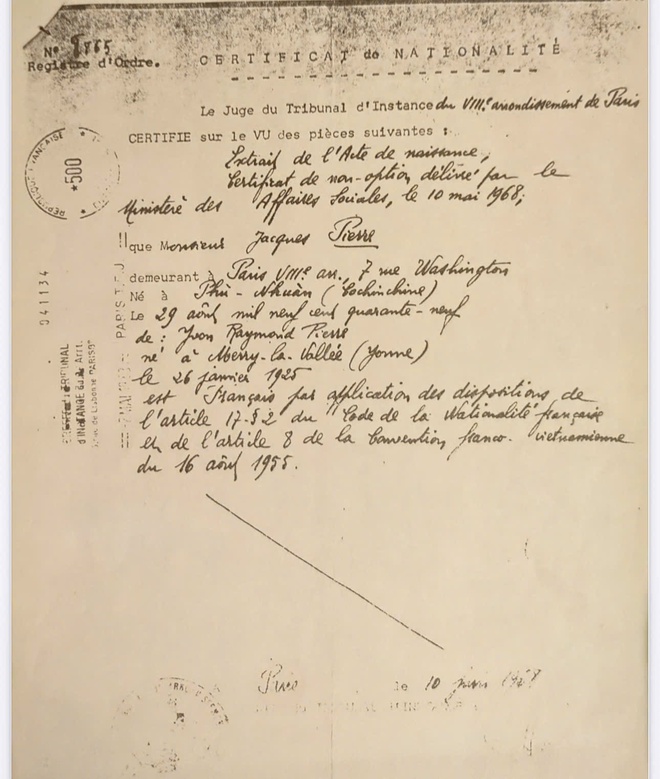 Nº 9865
Registre d'Ordre.
CERTIFICAT de NATIONALITÉ
Le Juge du Tribunal d'Instance du VIIIe arrondissement de Paris
CERTIFIE sur le VU des pièces suivantes :
Extrait de l'Acte de naissance,
Certificat de non-option délivré par le
Ministère des Affaires Sociales, le 10 mai 1968;
que Monsieur Jacques Pierre
demeurant à Paris VIIIe arr., 7 rue Washington
Né à Phù-Nhuân (Cochinchine)
Le 29 août mil neuf cent quarante-neuf
de : Yvon Raymond Pierre
né à Merry-la-Vallée (Yonne)
le 26 janvier 1925
est Français par application des dispositions de
l'article 17-§2 du Code de la Nationalité française
et de l'article 8 de la Convention franco-vietnamienne
du 16 août 1955.
le 10 juin 1968
RÉPUBLIQUE FRANÇAISE
*500
041134
PARIS
TRIBUNAL
d'INSTANCE du 8e Arrt.